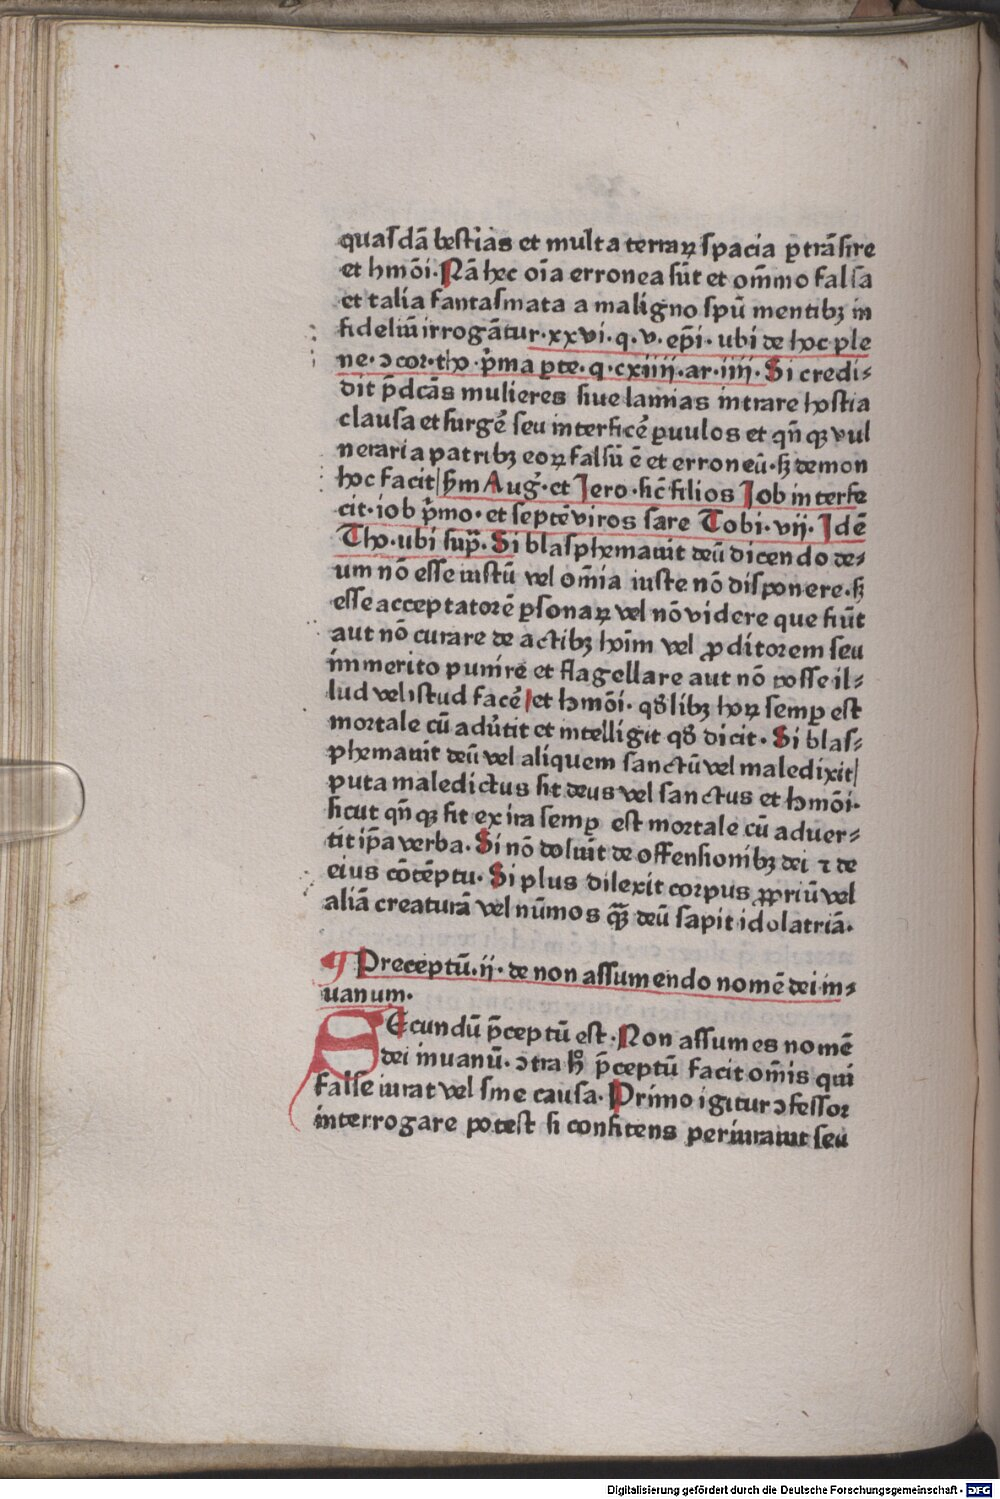 quasdã bestias et multa terraꝝ spacia ꝑtrãsire
et hmõi. Nã hec oĩa erronea sũt et om̃mo falsa
et talia fantasmata a maligno spũ mentibꝫ in
fideliũ irrogãtur. xxvi. q. v. ep̃i. ubi de hoc ple
ne. ꝯcor. tho. p̃ma ꝑte. q. cxiiii. ar. iiii. Si credi⸗
dit p̃dcãs mulieres siue lamias intrare hostia
clausa et surgẽ seu interficẽ ꝑuulos et qñ qꝫ vul
nerari a patribꝫ eoꝝ falsũ ẽ et erroneũ. sꝫ demon
hoc facit/ s̃m Aug̃. et Jero. sic̃ filios Job interfe
cit. iob p̃mo. et septẽ viros sare Tobi. vii. Jdẽ
Tho. ubi sup̃. Si blasphemauit deũ dicendo de⸗
um nõ esse iustũ vel om̃ia iuste nõ disponere. sꝫ
esse acceptatorẽ ꝑsonaꝝ vel nõ videre que fiũt
aut nõ curare de actibꝫ hoĩm vel ꝓditorem seu
immerito punire et flagellare aut nõ posse il⸗
lud vel istud facẽ/ et hmõi. qđlibꝫ hoꝝ semꝑ est
mortale cũ adũtit et intelligit qđ dicit. Si blas⸗
phemauit deũ vel aliquem sanctũ vel maledixit/
puta maledictus sit deus vel sanctus et hmõi.
sicut qñ qꝫ fit ex ira semꝑ est mortale cũ aduer⸗
tit ip̃a verba. Si nõ doluit de offensionibꝫ dei ⁊ de
eius cõtẽptu. Si plus dilexit corpus ꝓpriũ vel
aliã creaturã vel nũmos qᷓꝫ deũ sapit idolatriã.
¶ Preceptũ. ii. de non assumendo nomẽ dei in⸗
uanum.
SEcundũ p̃ceptũ est. Non assumes nomẽ
dei inuanũ. ꝯtra hͦ p̃ceptũ facit om̃is qui
false iurat vel sine causa. Primo igitur ꝯfessor
interrogare potest si confitens periurauit seu
Digitalisierung gefördert durch die Deutsche Forschungsgemeinschaft - DFG